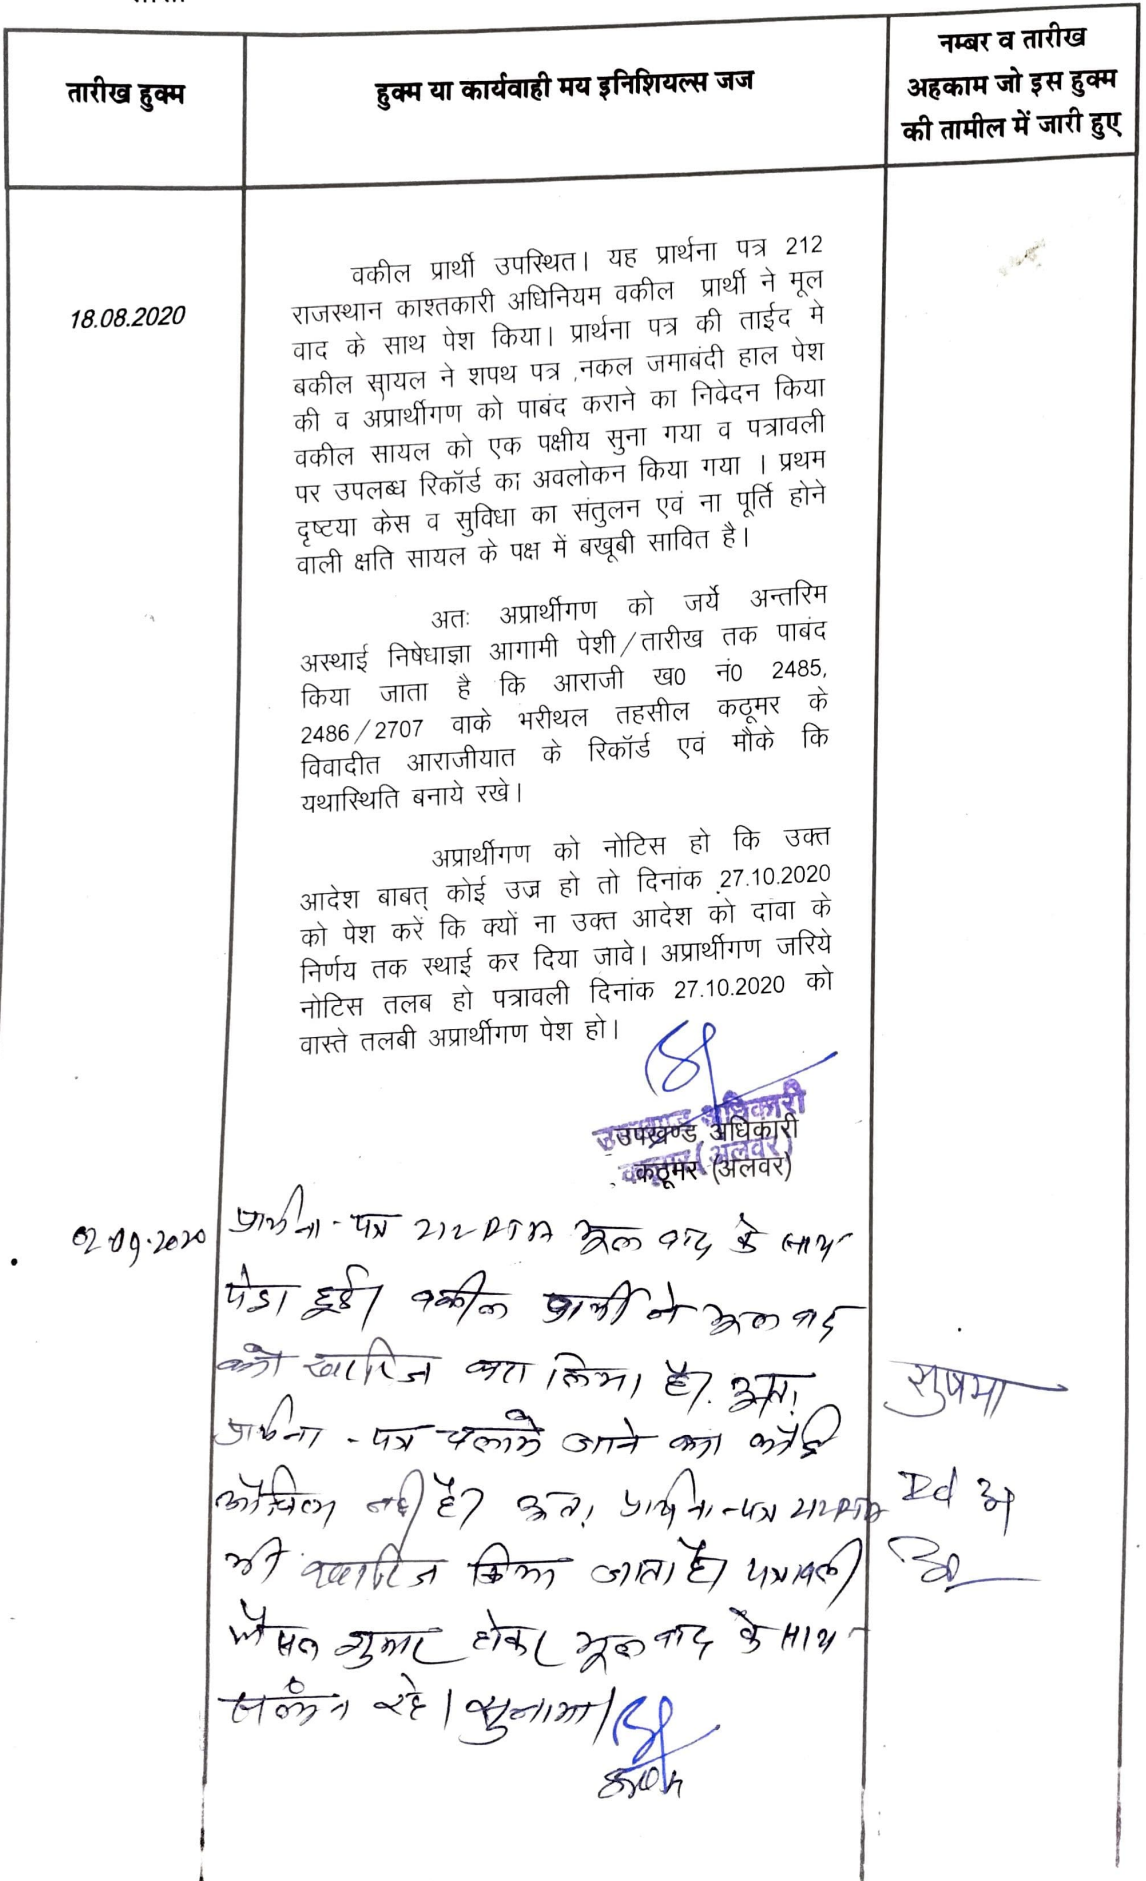 तारीख हुक्म
हुक्म या कार्यवाही मय इनिशियल्स जज
नम्बर व तारीख
अहकाम जो इस हुक्म
की तामील में जारी हुए
18.08.2020
वकील प्रार्थी उपस्थित। यह प्रार्थना पत्र 212
राजस्थान काश्तकारी अधिनियम वकील प्रार्थी ने मूल
वाद के साथ पेश किया। प्रार्थना पत्र की ताईद मे
बकील सायल ने शपथ पत्र ,नकल जमाबंदी हाल पेश
की व अप्रार्थीगण को पाबंद कराने का निवेदन किया
वकील सायल को एक पक्षीय सुना गया व पत्रावली
पर उपलब्ध रिकॉर्ड का अवलोकन किया गया । प्रथम
दृष्टया केस व सुविधा का संतुलन एवं ना पूर्ति होने
वाली क्षति सायल के पक्ष में बखूबी सावित है।
अतः अप्रार्थीगण को जर्ये अन्तरिम
अस्थाई निषेधाज्ञा आगामी पेशी/तारीख तक पाबंद
किया जाता है कि आराजी ख0 नं0 2485,
2486/2707 वाके भरीथल तहसील कठूमर के
विवादीत आराजीयात के रिकॉर्ड एवं मौके कि
यथास्थिति बनाये रखे।
अप्रार्थीगण को नोटिस हो कि उक्त
आदेश बाबत् कोई उज्र हो तो दिनांक 27.10.2020
को पेश करें कि क्यों ना उक्त आदेश को दावा के
निर्णय तक स्थाई कर दिया जावे। अप्रार्थीगण जरिये
नोटिस तलब हो पत्रावली दिनांक 27.10.2020 को
वास्ते तलबी अप्रार्थीगण पेश हो।
उपखण्ड अधिकारी
कठूमर (अलवर)
उपखण्ड अधिकारी
कठूमर (अलवर)
02-09-2020
प्रार्थना-पत्र 212 RTA मूल वाद के साथ
पेश हुई। वकील प्रार्थी ने मूल वाद
को खारिज करा लिया है। अतः
प्रार्थना-पत्र चलाये जाने का कोई
औचित्य नहीं है। अतः प्रार्थना-पत्र 212 RTA
को खारिज किया जाता है। पत्रावली
फैसल शुमार होकर मूल वाद के साथ
संलग्न रहे। सुनाया।
सुषमा